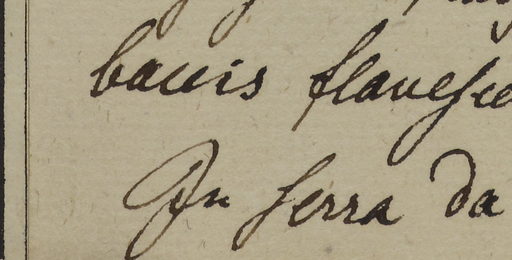 baccis flavesce
In serra da